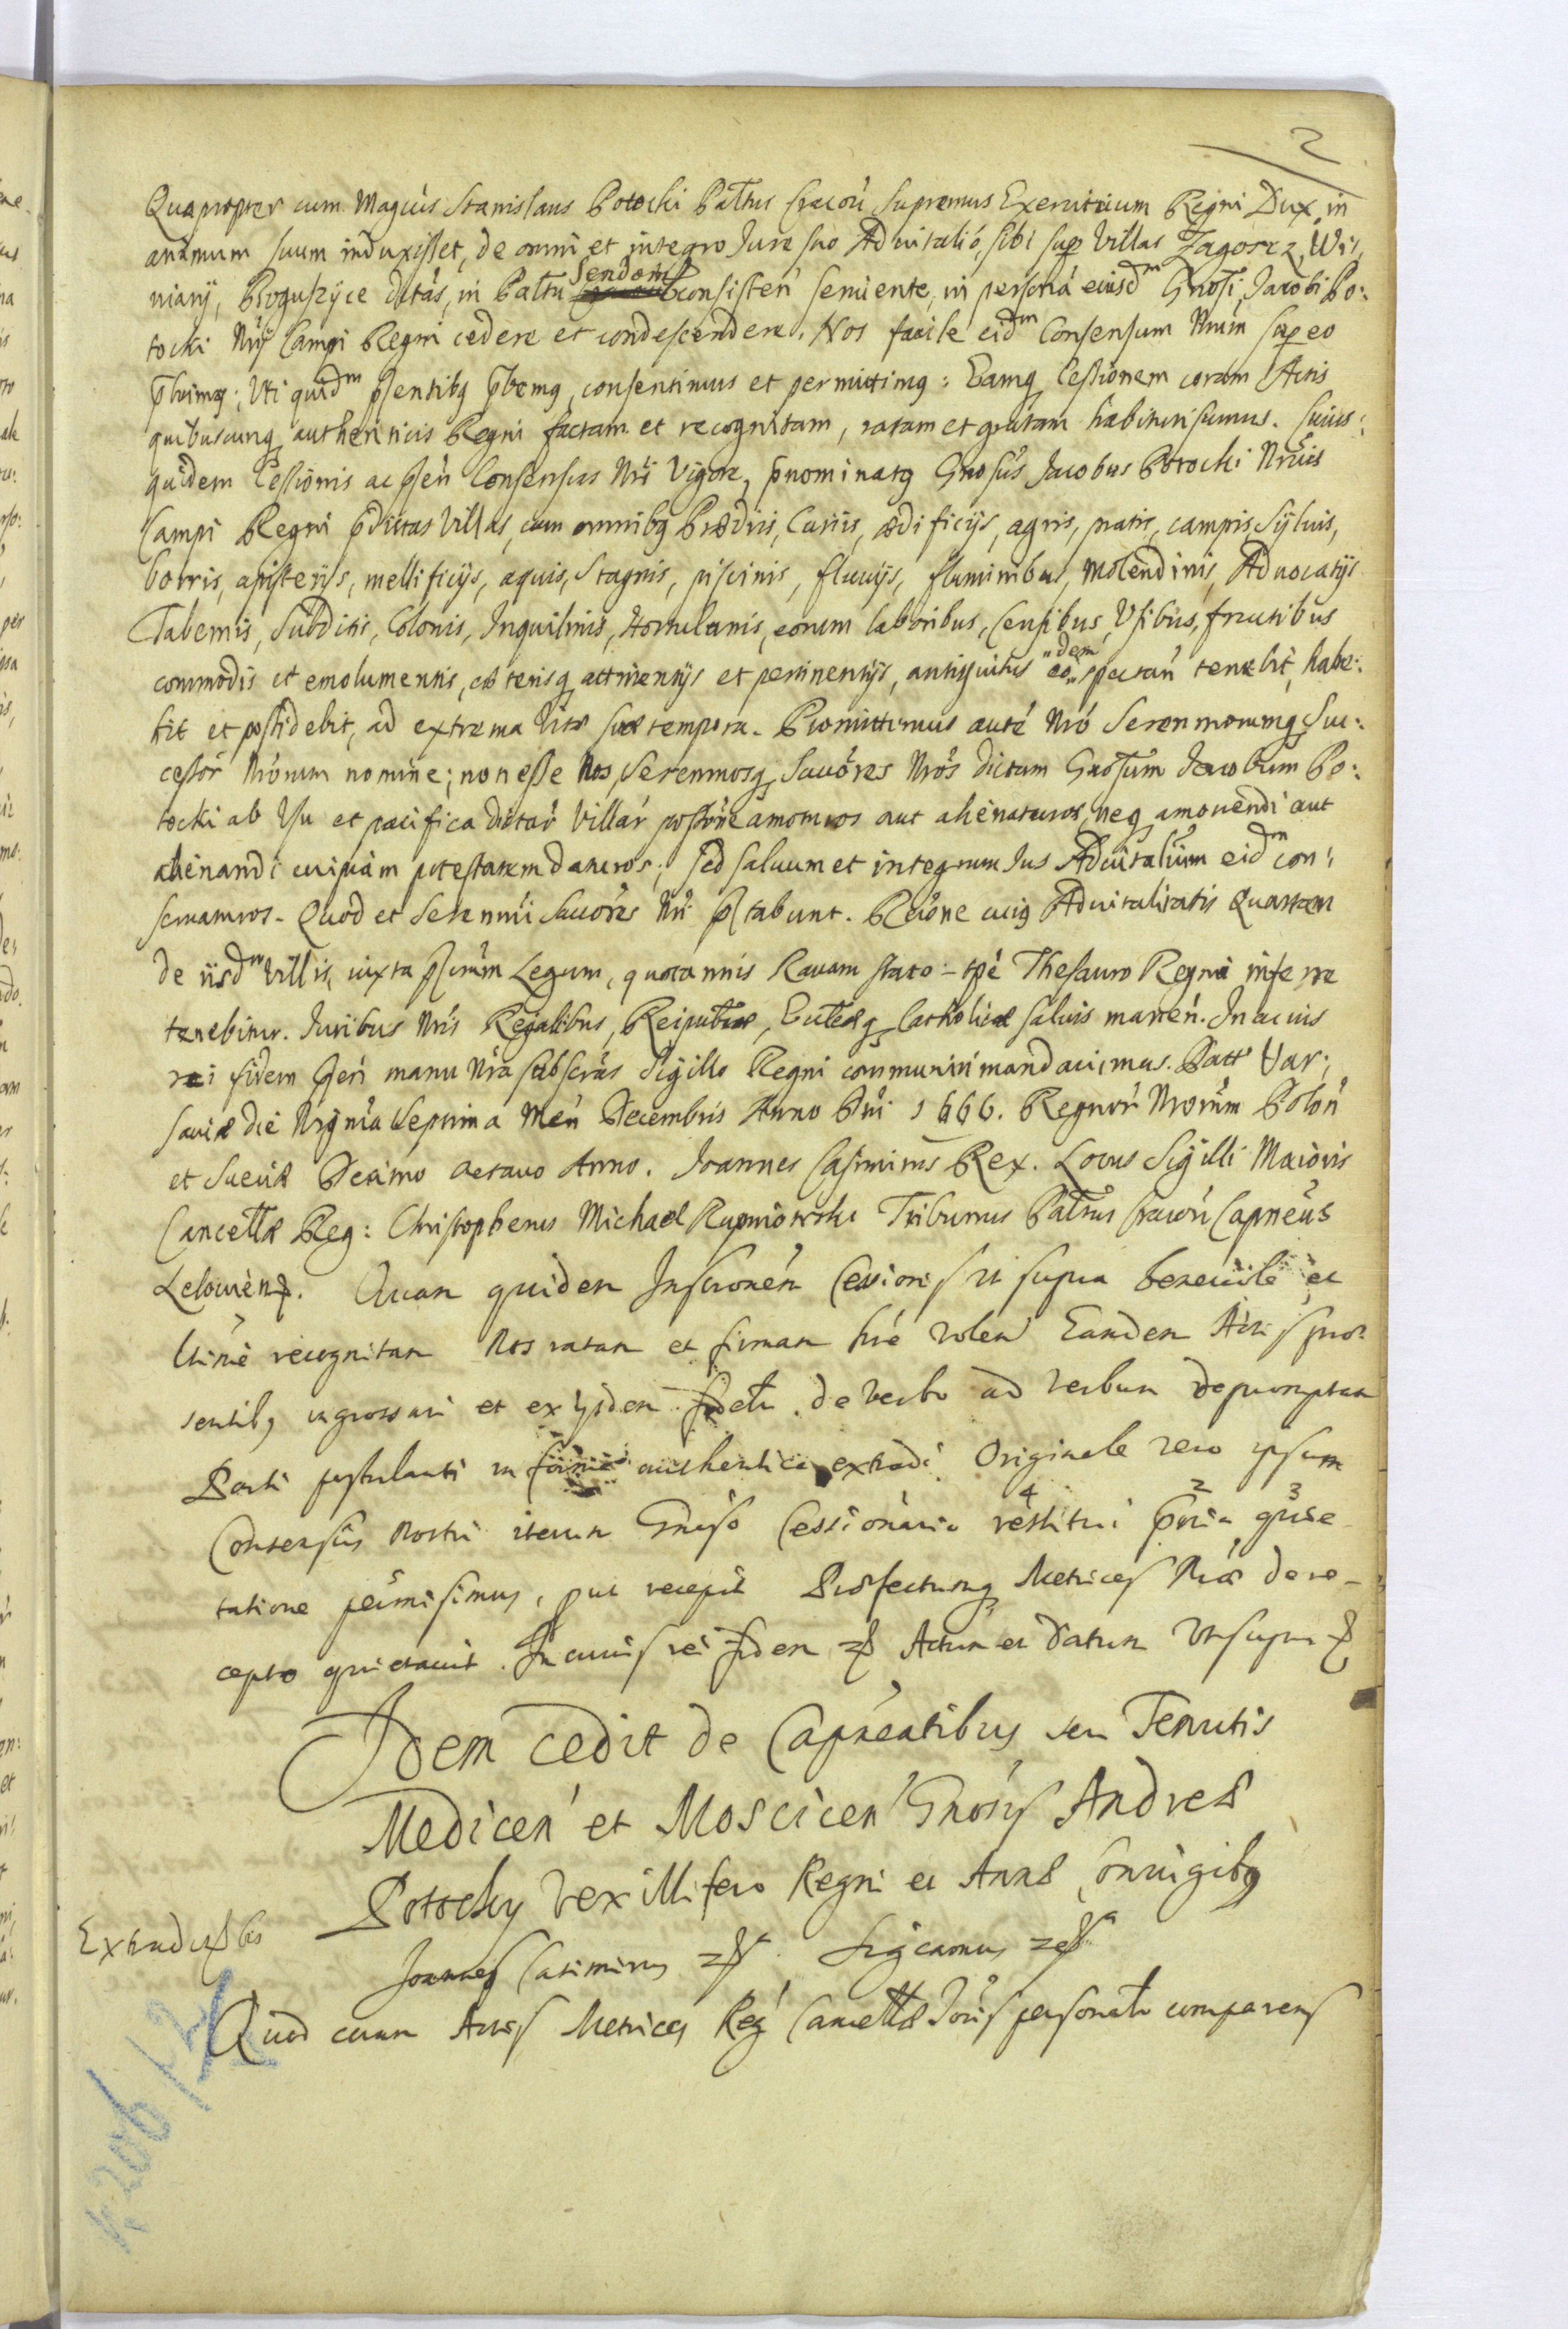 2
Quapropter cum Magcus Stanislaus Potocki Palťnus Cracoń Supremus Exercituum Regni Dux in
animum suum induxisset, de omni et integro Jure suo Advitalió, sibi sup Villas Zagorze, Wi,
niary, Boguszyce dictás, in Palťtu Sendomⁿ consisteń seruiente, in personá eiusdm Gnosi Jacobi Po:
tocki Nrij Campi Regni cedere et condescendere. Nos facile eidm Consensum Nrum sup eo
pbuimq; Uti quidm psentibq pbemq, consentimus et permittimq: Eamq Cessionem coram Actis
quibuscunq authenticis Regni factam et recognitam, ratam et gratam habituri sumus. Cuius:
quidem Cessionis ac pseń Consensus Nri Vigore, pnominatq Gnosus Jacobus Potocki Nrius
Campi Regni pdictas Villas, cum omnibq Prædiis, Curiis, ædificijs, agris, pratis, campis, Syluis,
borris, apisterijs, mellificijs, aquis, Stagnis, piscinis, fluuijs, fluminibus, Molendinis, Aduocatijs
Tabernis, Subditis, Colonis, Inquilinis, Hortulanis, eorum laboribus, Censibus, Usibus, fructibus
commodis et emolumentis, cæterisq attinentijs et pertinentijs, antiquitus eo„dem„ spectań tenebit, habe:
bit et possidebit, ad extrema Vitæ suæ tempora. Promittimus auté Nró Serenmorumq Suc:
cessór Nrórum nomine; non esse Nos, Serenmosq Succóres Nrós dictum Gnosum Jacobum Po:
tocki ab Usu et pacifica dictar Villar possóne amoturos aut alienaturos, neq amouendi aut
alienandi cuipiam potestatem daturos; sed saluum et integrum Jus Aduitalium eidm con:
seruaturos. Quod et Serennmi Succóres Nri pstabunt. Raóne cuiq Aduitalitatis Quartam
de iisdm Villis, iuxta pscrúm Legum, quotannis Rauam stato tpé Thesauro Regni inferre
tenebitur. Juribus Nris Regalibus, Reiputæ, Ecclæq Catholicæ saluis maneń. In cuius
rei fidem pseń manu Nra subscrás Sigillo Regni communiri mandauimus. Datt Var:
sauiæ die Vigesima Septima Meń Decembris Anno Dni 1666. Regnoŕ Nrorum Poloń
et Sueciæ Decimo octauo Anno. Joannes Casimirus Rex. Locus Sigilli Maioris
Cancellæ Reg: Christophorus Michael Rupniowski Tribunus Palťtus Cracoń Capneus
Lelouien. Quam quidem Inscrónem Cessionis ut supra beneuole et
libere recognitam Nos ratam et firmam hre Volen Eandem Actis præ
sentibq ingrossari et ex ijsdem fideli de verbo ad verbum depromptam
Parti postulanti in forma authentica extradi Originale vero ipsum
Consensus Nostri iterum Gnoso Cessionario 4 restitui 2 pria 3 quie
tatione permisimus, put recepit Prosfectumq Metrices Nræ de re-
cepto quietauit. In cuius rei fidem Actum et datum Ut supra
Idem cedit de Capneatibus seu Tenutis
Mediceń et Mosciceń Gnosis Andreæ
Potocky Vexillifero Regni et Annæ Coniugibq
Joannes Casimirus Significamus
Quod coram Actis Metrices Reg Cancellæ Nris personalr comparens